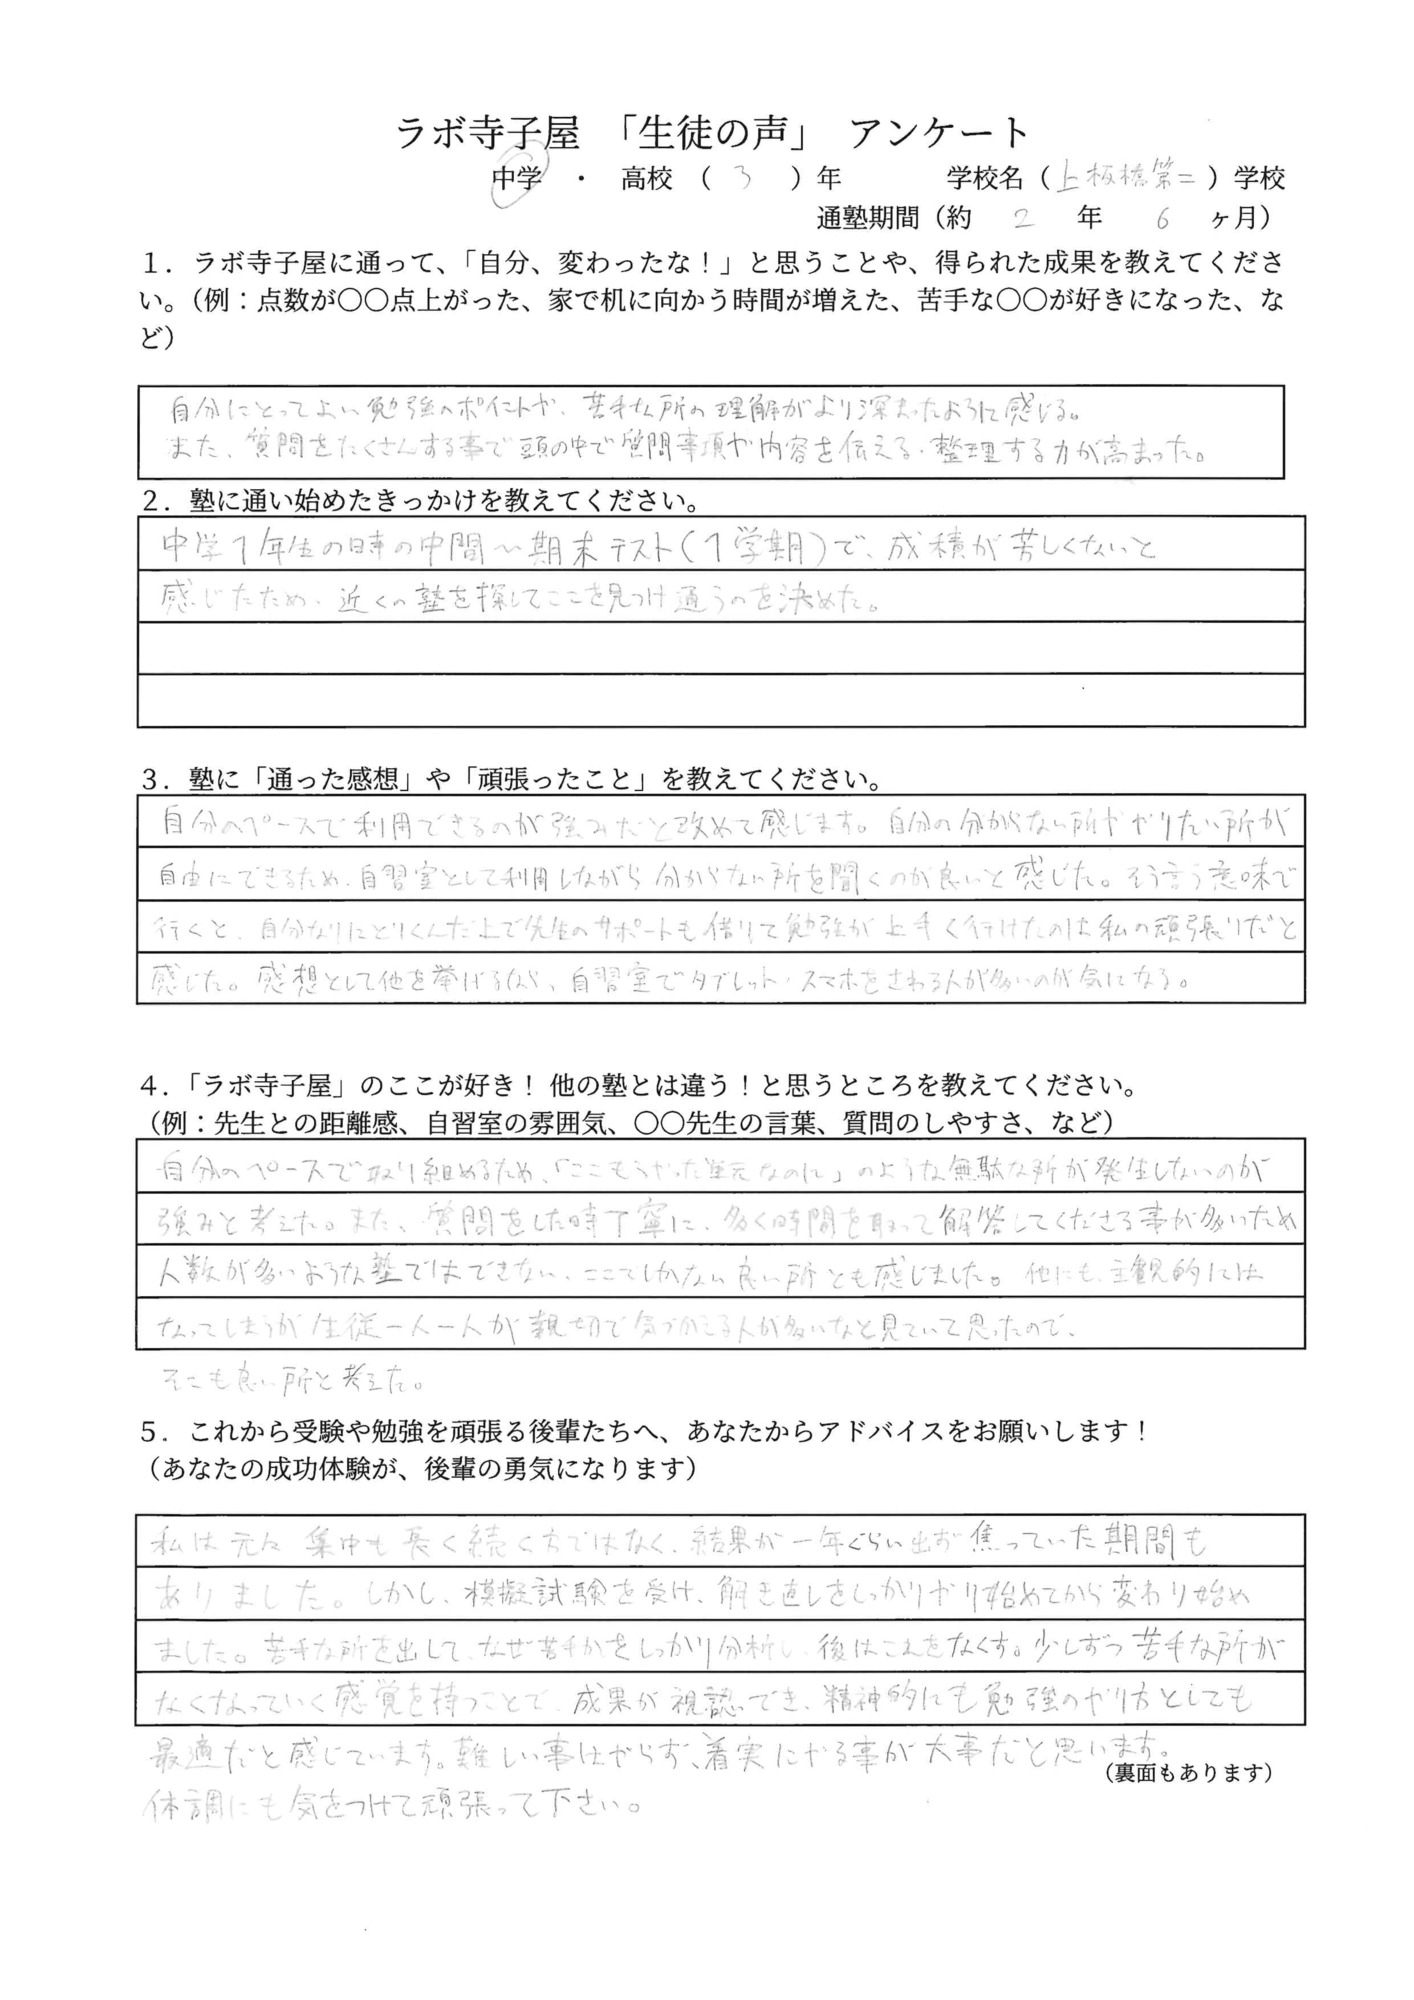 ラボ寺子屋 「生徒の声」 アンケート
中学 ・ 高校 ( 3 ) 年 学校名 ( 上板橋第二 ) 学校
通塾期間 (約 2 年 6 ヶ月)
1. ラボ寺子屋に通って、「自分、変わったな！」と思うことや、得られた成果を教えてくださ
い。(例：点数が〇〇点上がった、家で机に向かう時間が増えた、苦手な〇〇が好きになった、な
ど)
自分にとってよい勉強のポイントや、苦手な所の理解がより深まったように感じる。
また、質問をたくさんする事で頭の中で質問事項や内容を伝える・整理する力が高まった。
2. 塾に通い始めたきっかけを教えてください。
中学1年生の時の中間〜期末テスト(1学期)で、成積が芳しくないと
感じたため、近くの塾を探してここを見つけ通うのを決めた。
3. 塾に「通った感想」や「頑張ったこと」を教えてください。
自分のペースで利用できるのが強みだと改めて感じます。自分の分からない所ややりたい所が
自由にできるため、自習室として利用しながら分からない所を聞くのが良いと感じた。そう言う意味で
行くと、自分なりにとりくんだ上で先生のサポートも借りて勉強が上手く行けたのは私の頑張りだと
感じた。感想として他を挙げるなら、自習室でタブレット・スマホをさわる人が多いのが気になる。
4.「ラボ寺子屋」のここが好き！ 他の塾とは違う！と思うところを教えてください。
(例：先生との距離感、自習室の雰囲気、〇〇先生の言葉、質問のしやすさ、など)
自分のペースで取り組めるため、「ここもうやった単元なのに」のような無駄な所が発生しないのが
強みと考えた。また、質問をした時丁寧に、多く時間を取って解答してくださる事が多いため
人数が多いような塾ではできない、ここでしかない良い所とも感じました。他にも、主観的には
なってしまうが生徒一人一人が親切で気づかえる人が多いなと見ていて思ったので、
そこも良い所と考えた。
5. これから受験や勉強を頑張る後輩たちへ、あなたからアドバイスをお願いします！
(あなたの成功体験が、後輩の勇気になります)
私は元々集中も長く続く方ではなく、結果が一年ぐらい出ず焦っていた期間も
ありました。しかし、模擬試験を受け、解き直しをしっかりやり始めてから変わり始め
ました。苦手な所を出して、なぜ苦手かをしっかり分析し、後はこれをなくす。少しずつ苦手な所が
なくなっていく感覚を持つことで、成果が視認でき、精神的にも勉強のやり方としても
最適だと感じています。難しい事はやらず、着実にやる事が大事だと思います。
(裏面もあります)
体調にも気をつけて頑張って下さい。